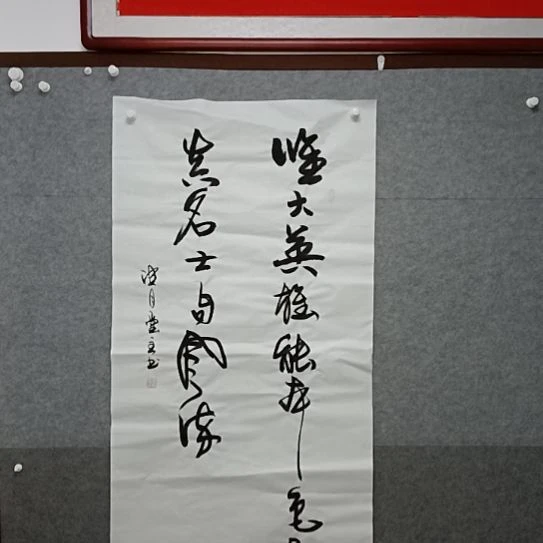 唯大英雄能本色
真名士自风流
堂主书